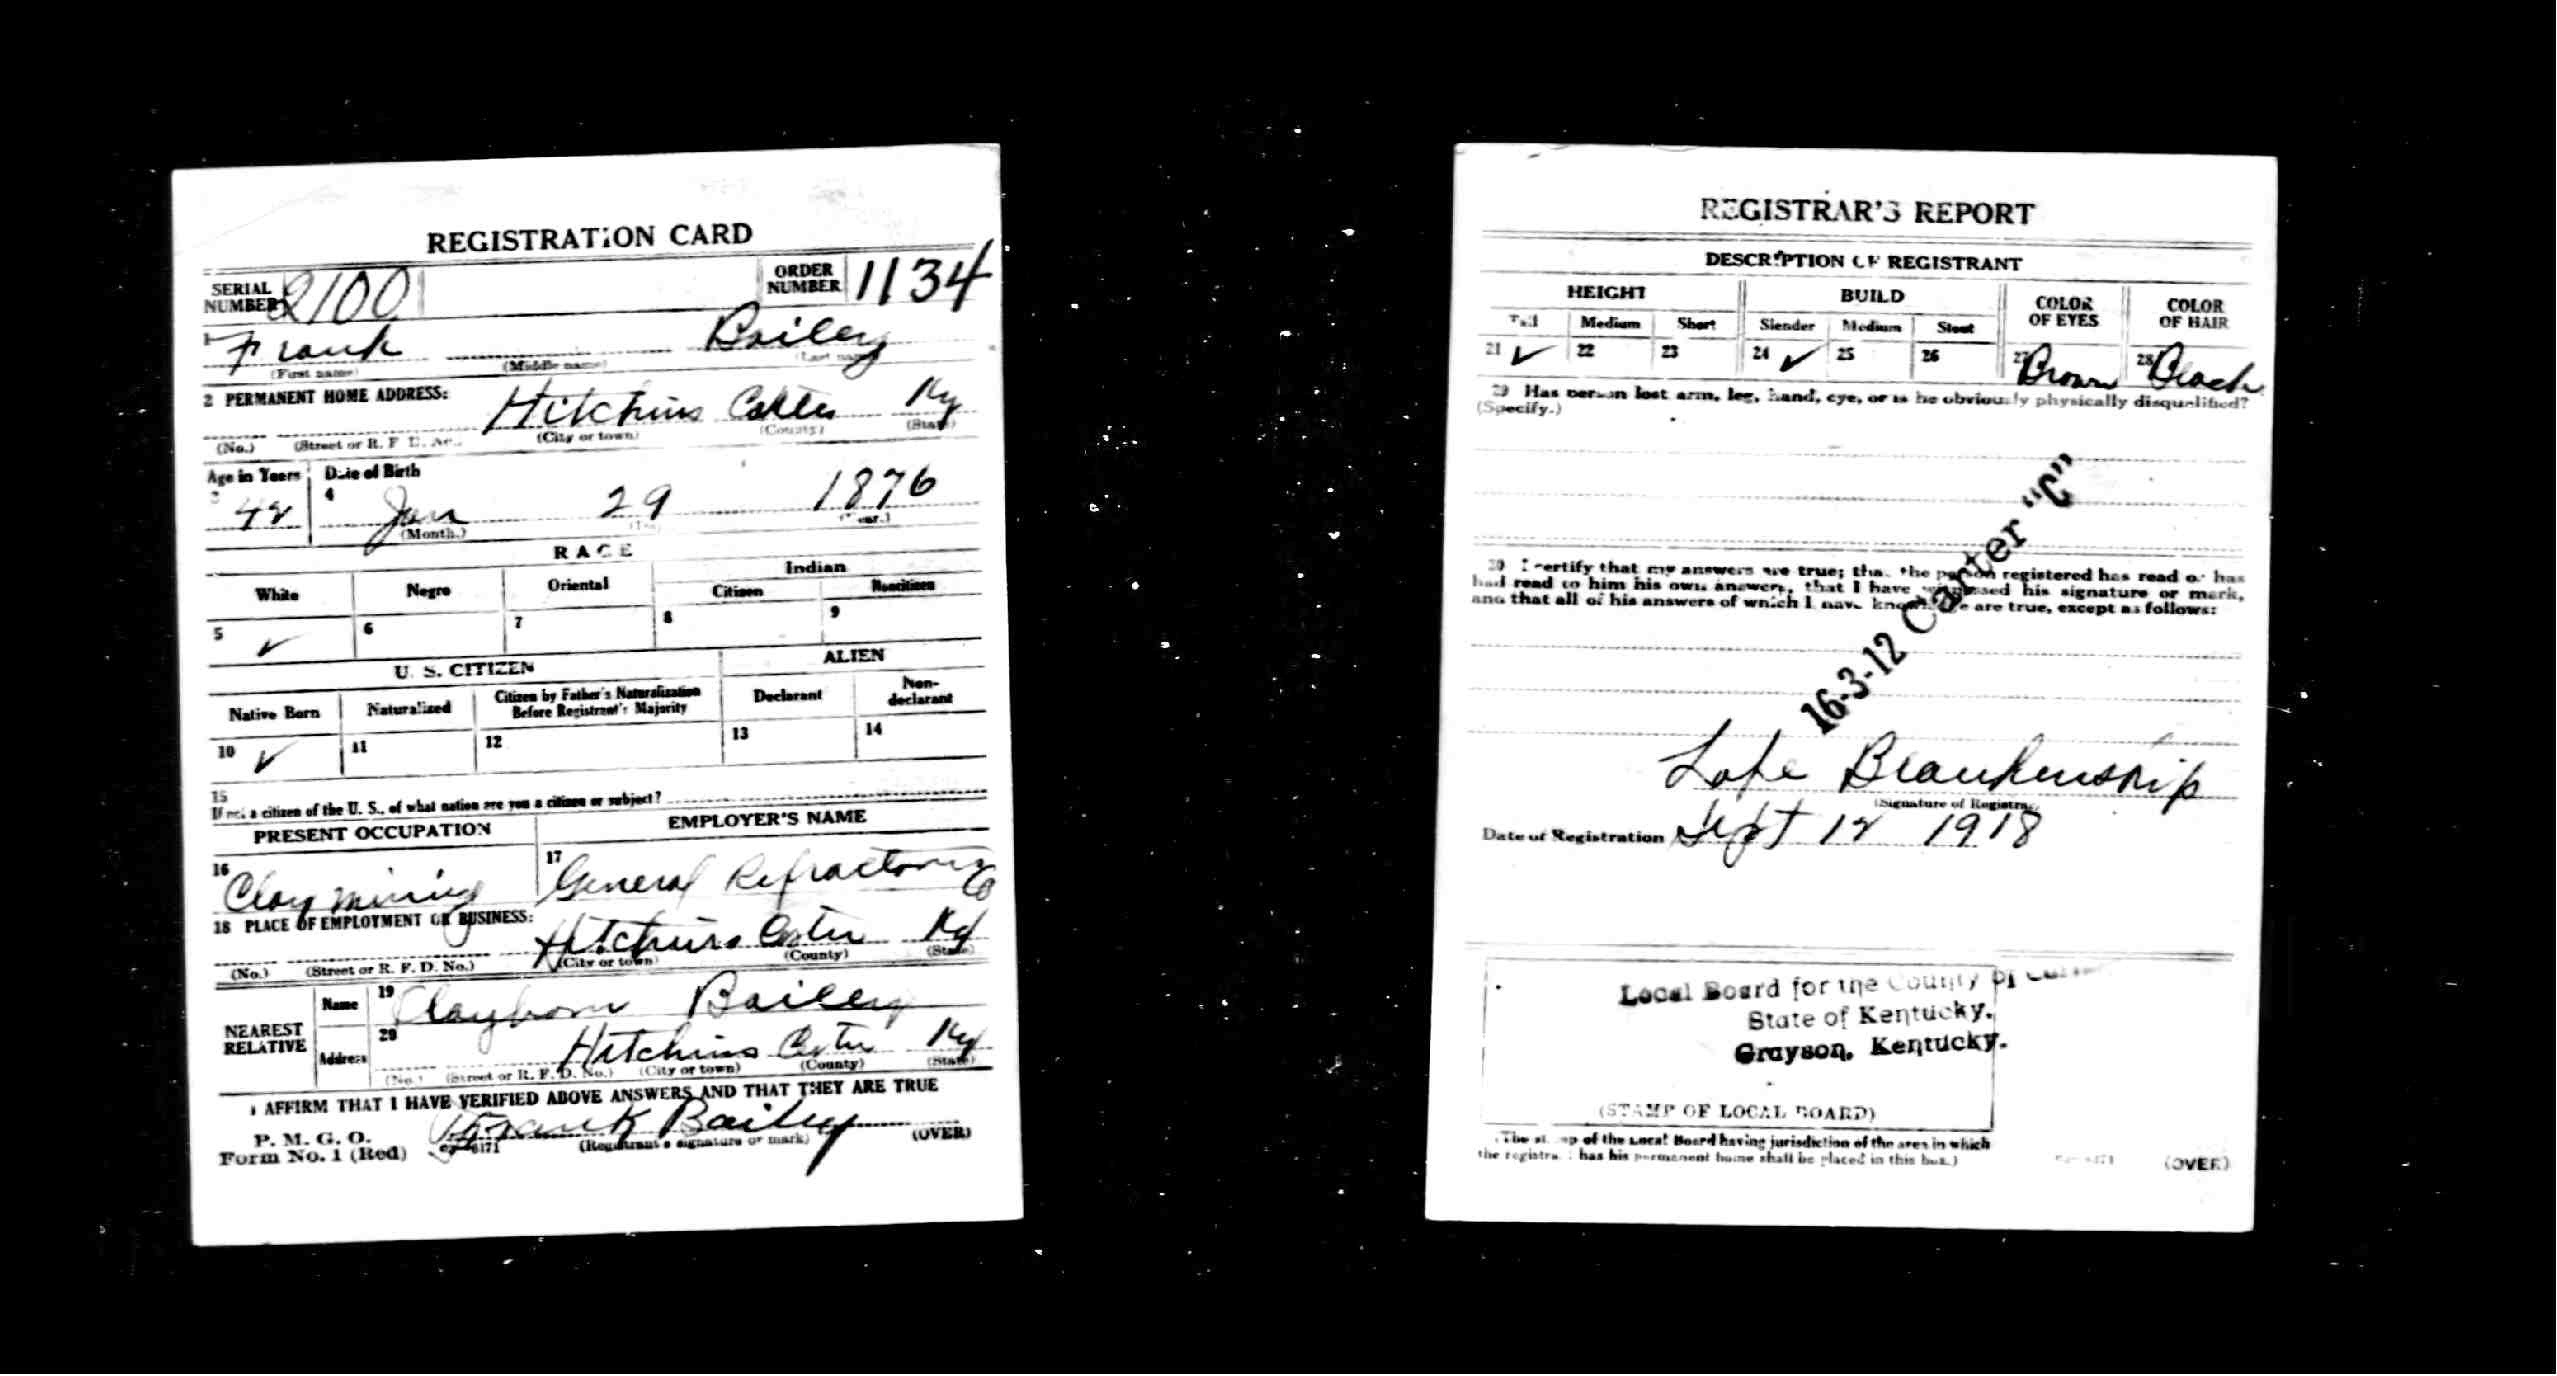 REGISTRATION CARD
SERIAL NUMBER 2100 ORDER NUMBER 1134
1 Frank Bailey
(First name) (Middle name) (Last name)
2 PERMANENT HOME ADDRESS:
Hitchins Carter Ky
(No.) (Street or R. F. D. No.) (City or town) (County) (State)
Age in Years Date of Birth
3 42 4 Jan 29 1876
(Month.) (Day.) (Year.)
RACE
White Negro Oriental Indian
Citizen Noncitizen
5 ✓ 6 7 8 9
U. S. CITIZEN ALIEN
Native Born Naturalized Citizen by Father's Naturalization Before Registrant's Majority Declarant Non-declarant
10 ✓ 11 12 13 14
15
If not a citizen of the U. S., of what nation are you a citizen or subject?
PRESENT OCCUPATION EMPLOYER'S NAME
16 Clay mining 17 General Refractories Co
18 PLACE OF EMPLOYMENT OR BUSINESS:
Hitchins Carter Ky
(No.) (Street or R. F. D. No.) (City or town) (County) (State)
NEAREST RELATIVE Name 19 Clayborn Bailey
Address 20 Hitchins Carter Ky
(No.) (Street or R. F. D. No.) (City or town) (County) (State)
I AFFIRM THAT I HAVE VERIFIED ABOVE ANSWERS AND THAT THEY ARE TRUE
P. M. G. O.
Form No. 1 (Red) Frank Bailey
(Registrant's signature or mark) (OVER)
REGISTRAR'S REPORT
DESCRIPTION OF REGISTRANT
HEIGHT BUILD COLOR OF EYES COLOR OF HAIR
Tall Medium Short Slender Medium Stout
21 ✓ 22 23 24 ✓ 25 26 27 Brown 28 Black
29 Has person lost arm, leg, hand, eye, or is he obviously physically disqualified?
(Specify.)
30 I certify that my answers are true; that the person registered has read or has
had read to him his own answers, that I have witnessed his signature or mark,
and that all of his answers of which I have knowledge are true, except as follows:
16-3-12 Carter "C"
Lafe Blankenship
(Signature of Registrar)
Date of Registration Sept 12 1918
Local Board for the County of
State of Kentucky.
Grayson, Kentucky.
(STAMP OF LOCAL BOARD)
(The stamp of the Local Board having jurisdiction of the area in which
the registrant has his permanent home shall be placed in this box.)
(OVER)